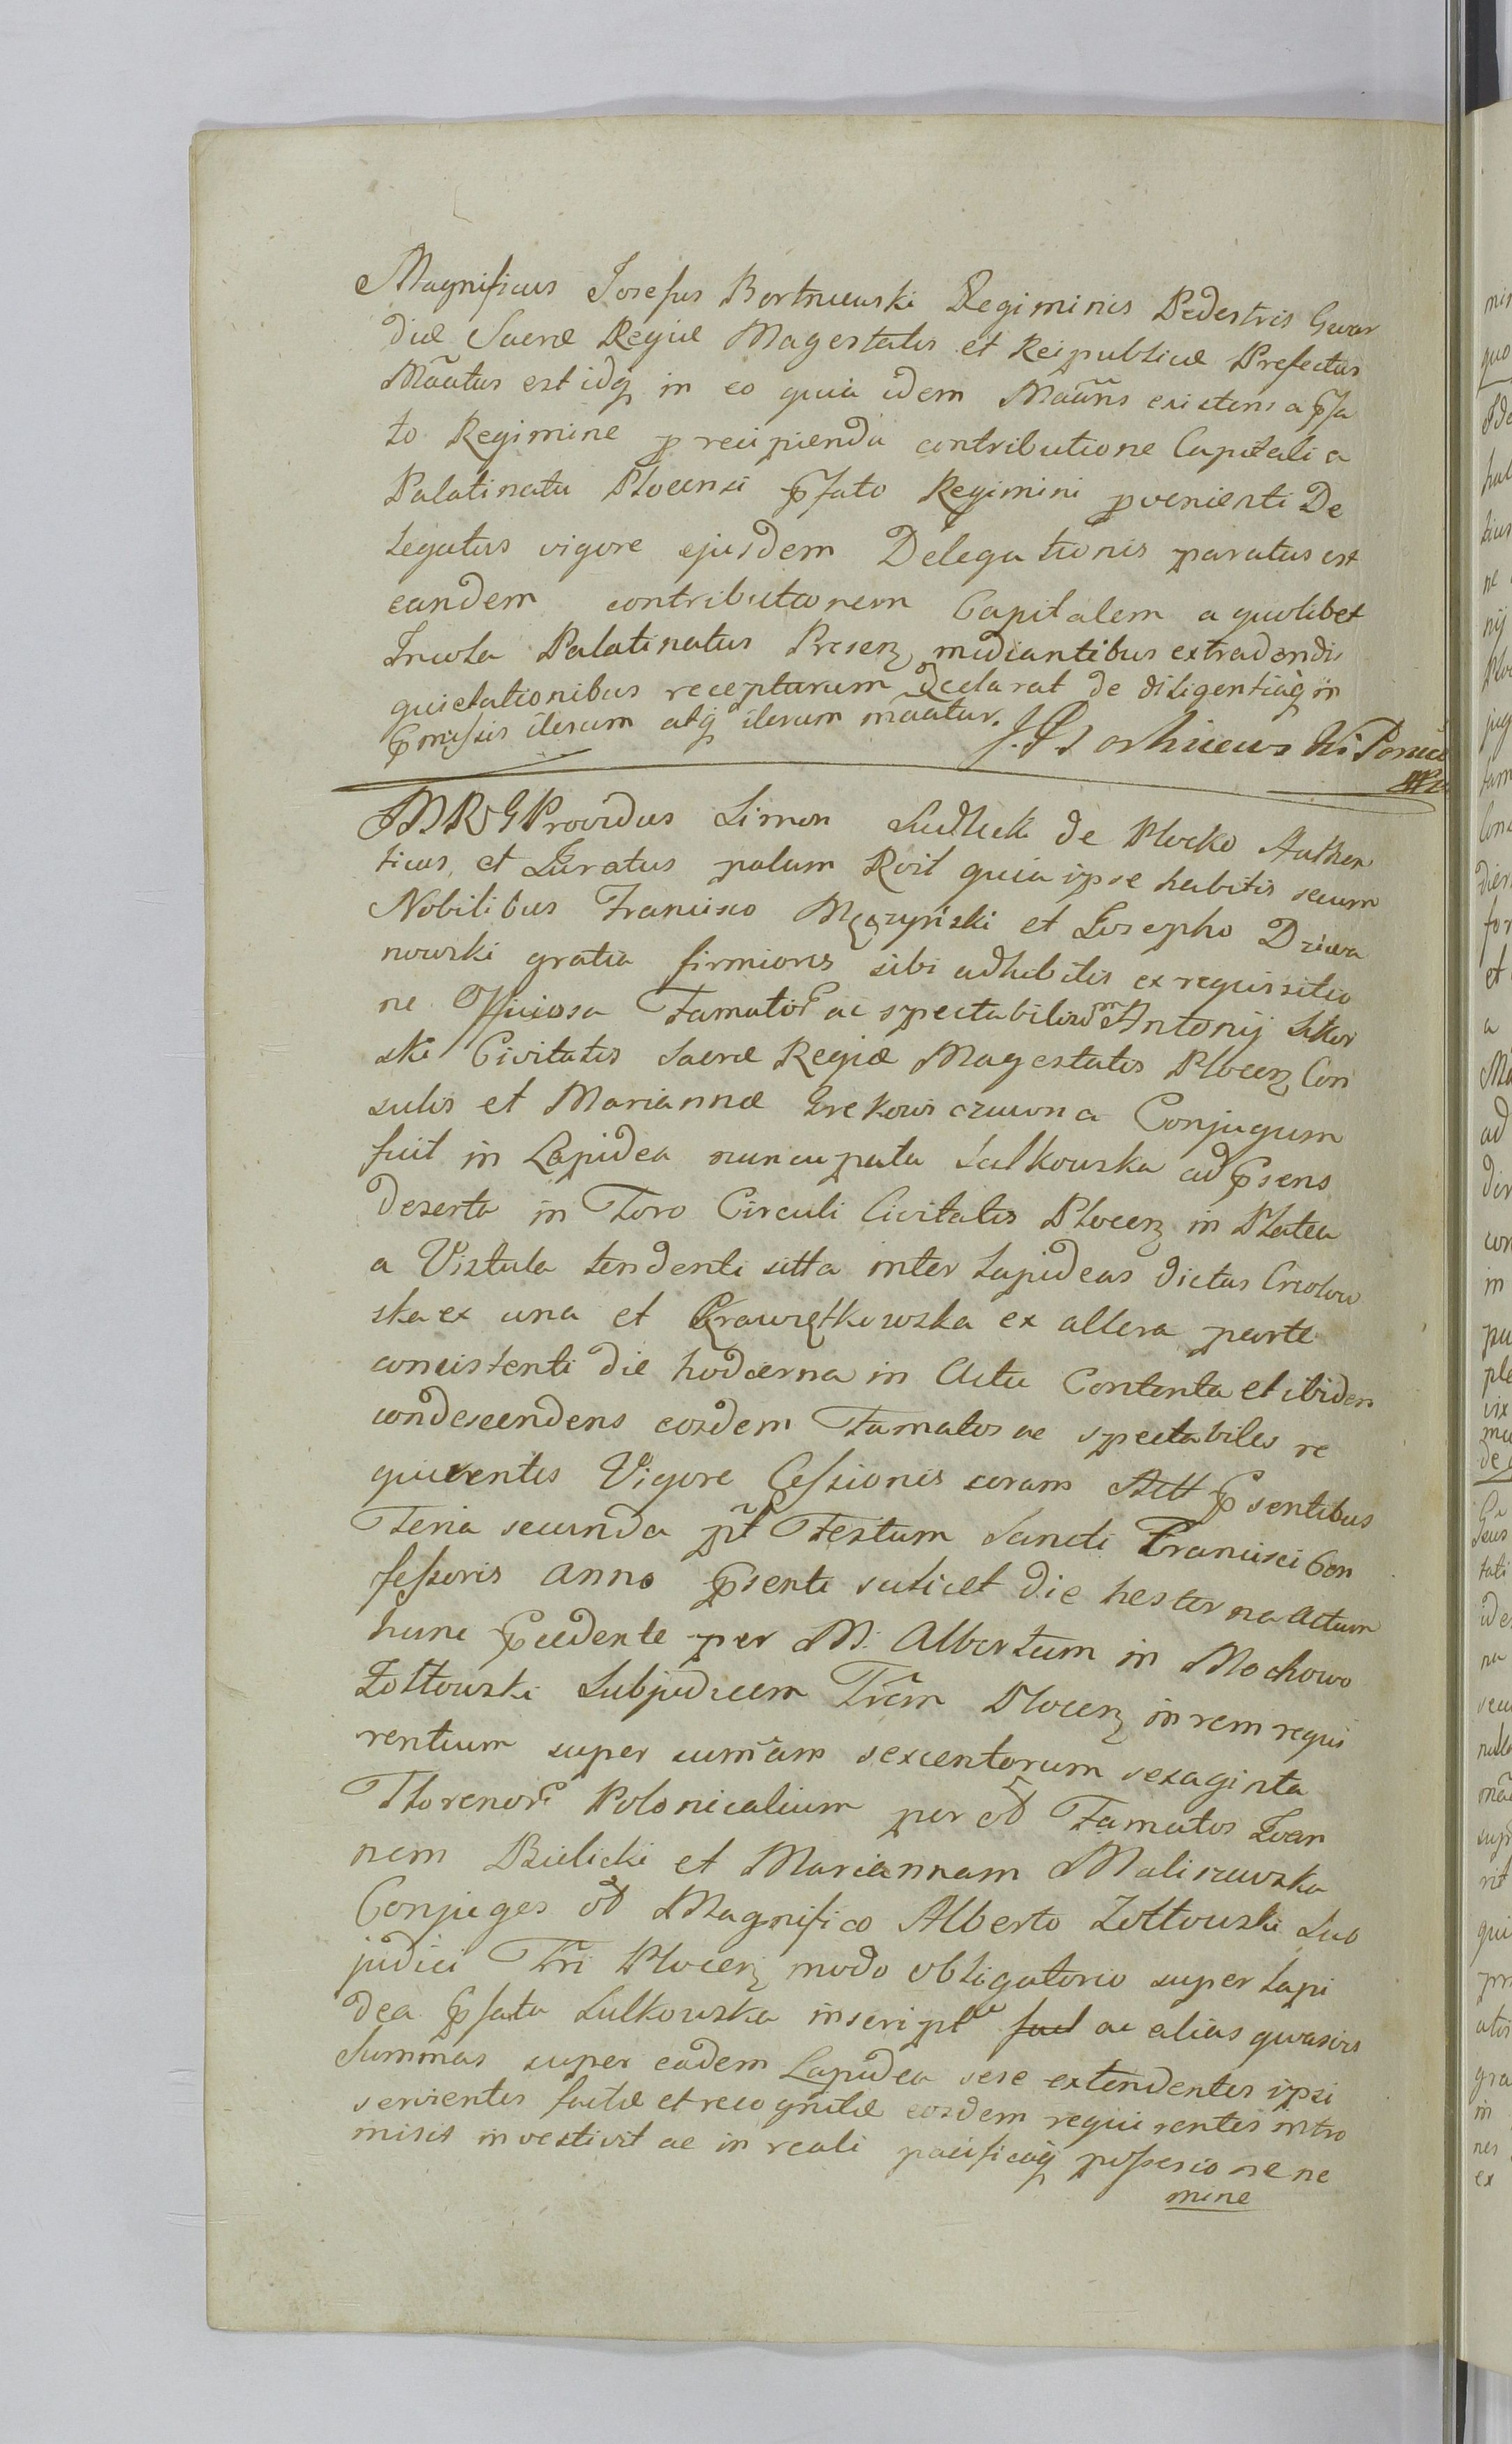 Magnificus Josefus Bortnieuski Regiminis Pedestris Gwar
diæ Sacræ Regiæ Magestatis et Reipublicæ Prefectus
Mãatus est idq in eo quia idem Mãans existens a pfa
to Regimine p recipienda contributione Capitali a
Palatinatu Plocensi pfato Regimini pvenienti De
legatus vigore ejusdem Delegationis paratus est
eandem contributionem Capitalem a quolibet
Incola Palatinatus Presen mediantibus extradendis
quietationibus recepturum declarat de diligentiaq in
pmissis iterum atq iterum mãatur.
MRG Providus Simon Sudlick de Plocko Authen
ticus, et Juratus palam Roit quia ipse habitis secum
Nobilibus Francisco Męczyński et Josepho Dziewa
nowski gratia firmioris sibi adhibitis ex requissitio
ne Officiosa Famator ac spectabilium Antonij Sikor
ski Civitatis Sacræ Regiæ Magestatis Plocen Con
sulis et Mariannæ Grekowiczuwna Conjugum
fuit in Lapidea nuncupata Sulkowska ad psens
deserta in Foro Circuli Civitatis Plocen in Platea
a Vistula tendenti sitta inter Lapideas dictas
ska ex una et ex altera parte
concistenti die hodierna in Actu Contenta et ibidem
condescendens eosdem Famatos ac spectabiles re
quirentes Vigore Cessionis coram Actt psentibus
Feria secunda pt Festum Sancti Francisci Con
fessoris anno psenti scilicet die hesterna Actum
hunc pcedente per M. Albertum in Mochowo
Zołtowski Subjudicem Trêm Plocen in rem requi
rentium super sumãm sexcentorum sexaginta
Florenor Polonicalium per od Famatos Joan
nem Bielicki et Mariannam Maliszewska
Conjuges od Magnifico Alberto Zołtowski Sub
judici Tri Plocen modo obligatorio super Lapi
dea pfata Sulkowska inscript fact ac alias quasvis
Summas super eadem Lapidea sese extendentes ipsi
servientes factæ et recognitæ eosdem requirentes intro
misit investivit ac in reali pacificaq possesione ne
mine